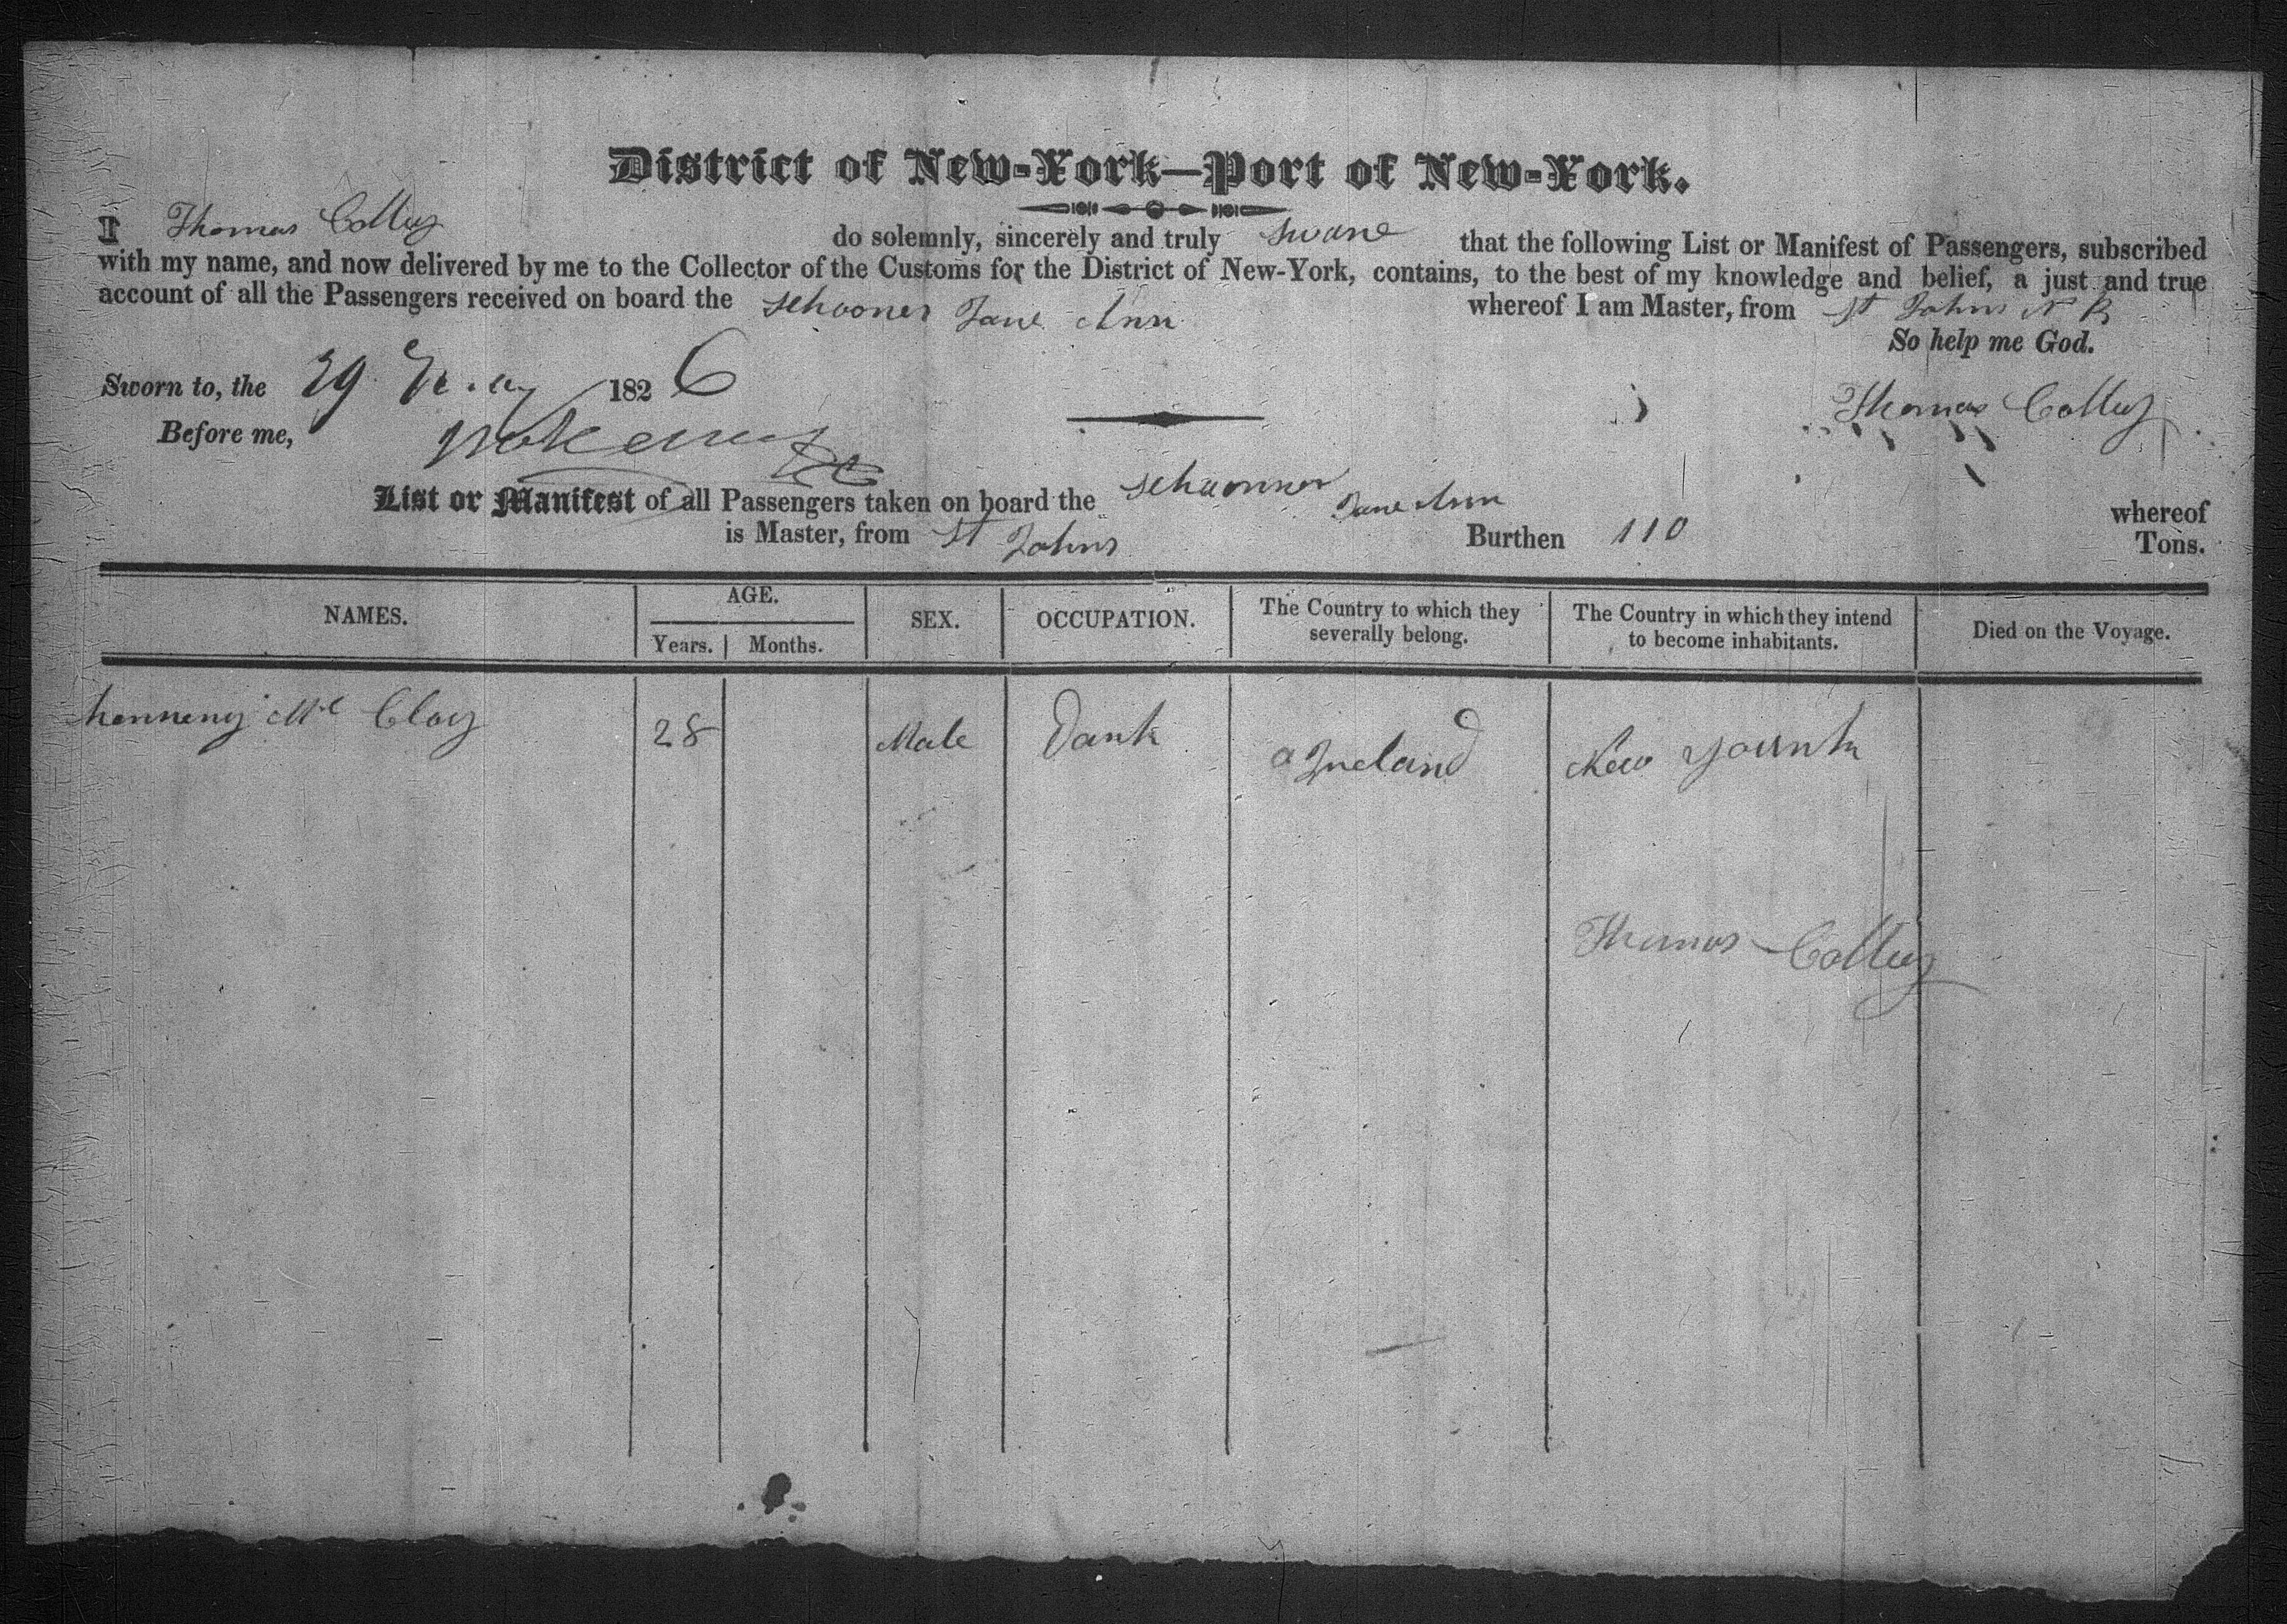 District of New-York—Port of New-York.
I Thomas Colley do solemnly, sincerely and truly sware that the following List or Manifest of Passengers, subscribed
with my name, and now delivered by me to the Collector of the Customs for the District of New-York, contains, to the best of my knowledge and belief, a just and true
account of all the Passengers received on board the schooner Jane Ann whereof I am Master, from St Johns N B
So help me God.
Sworn to, the 29 May 1826
Thomas Colley
Before me,
List or Manifest of all Passengers taken on board the schoonner Jane Ann whereof
is Master, from St Johns Burthen 110 Tons.
NAMES. AGE. SEX. OCCUPATION. The Country to which they severally belong. The Country in which they intend to become inhabitants. Died on the Voyage.
Years. Months.
Mc Cloy 28 Male Ireland New
Thomas Colley